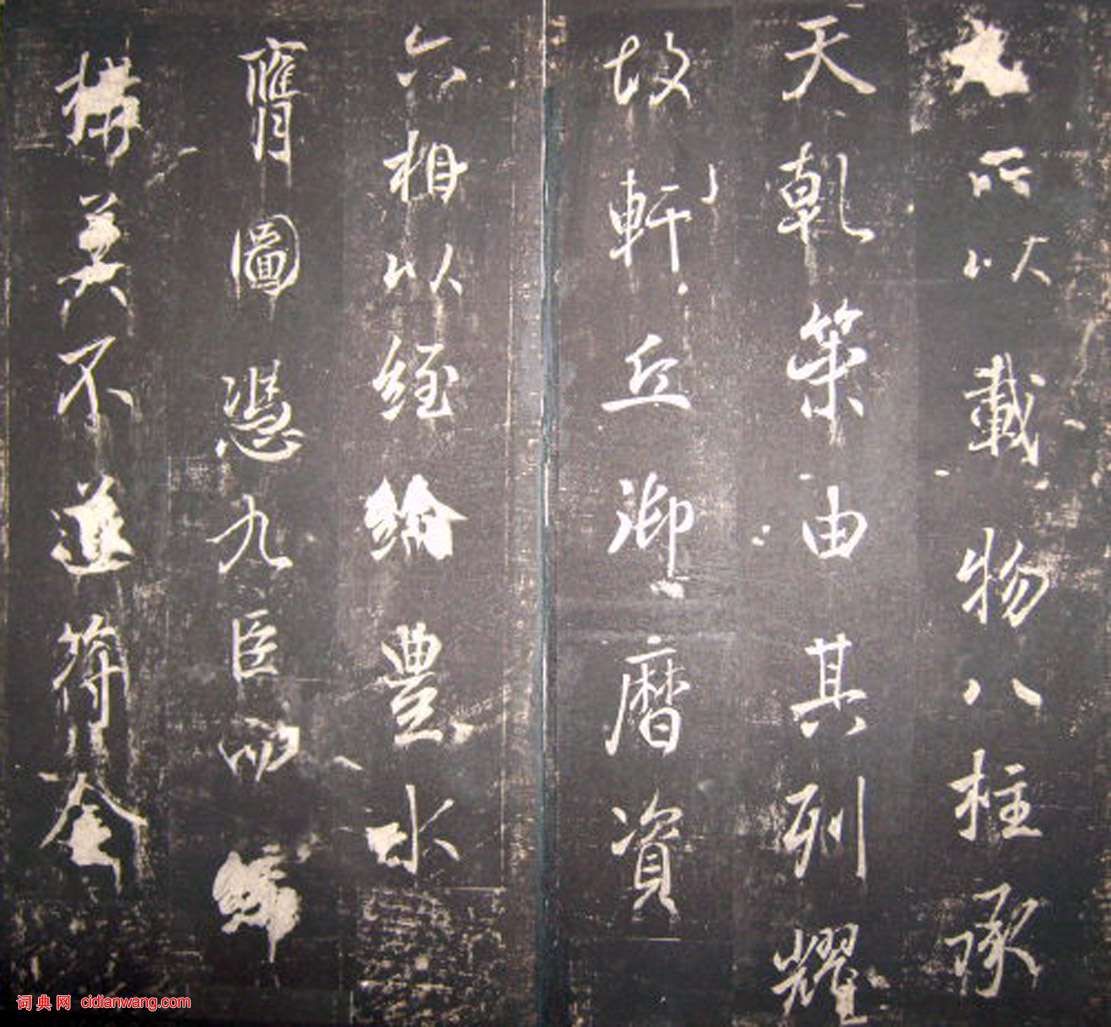 所以載物八柱承
天乾策由其列耀
故軒丘御曆資
六相以經綸豊水
膺圖憑九臣而
構莫不道符金
词典网 cidianwang.com